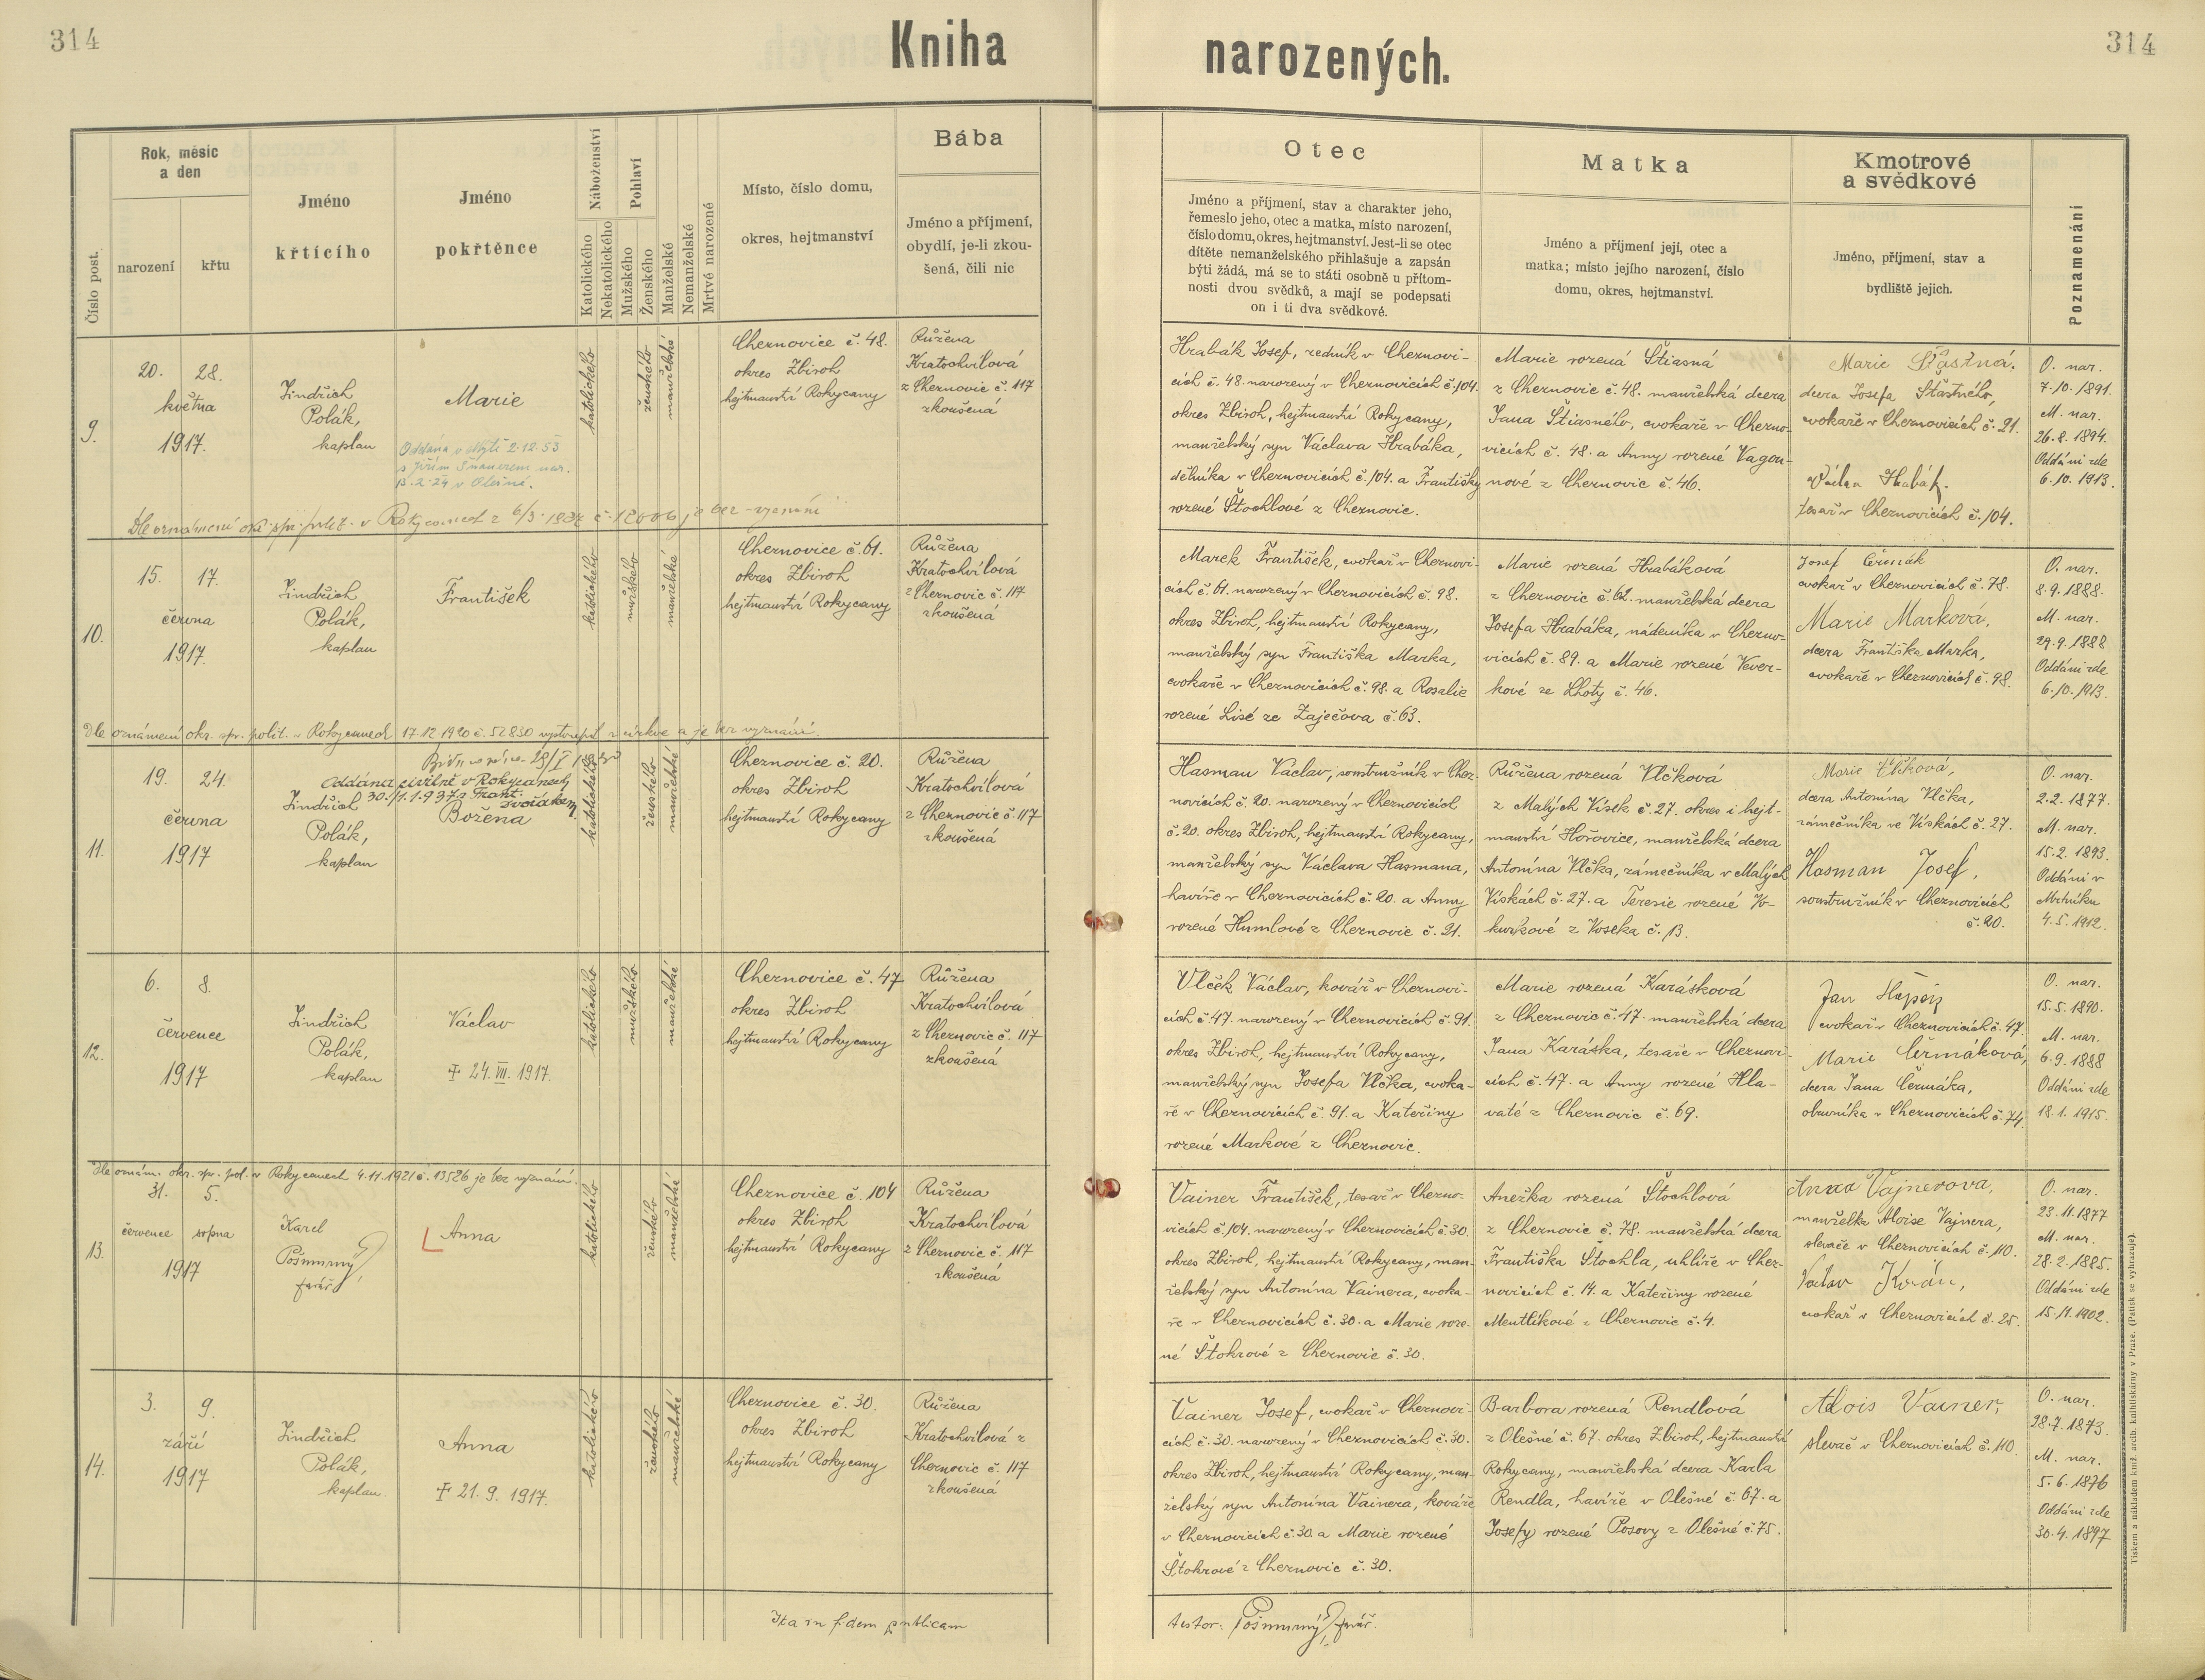 314
Kniha
narozených.
314
Číslo post.
Rok, měsíc
a den
narození
křtu
Jméno
křtícího
Jméno
pokřtěnce
Náboženství
Katolického
Nekatolického
Pohlaví
Mužského
Ženského
Manželské
Nemanželské
Mrtvé narozené
Místo, číslo domu,
okres, hejtmanství
Bába
Jméno a příjmení,
obydlí, je-li zkou-
šená, čili nic
Otec
Jméno a příjmení, stav a charakter jeho,
řemeslo jeho, otec a matka, místo narození,
číslo domu, okres, hejtmanství. Jest-li se otec
dítěte nemanželského přihlašuje a zapsán
býti žádá, má se to státi osobně u přítom-
nosti dvou svědků, a mají se podepsati
on i ti dva svědkové.
Matka
Jméno a příjmení její, otec a
matka; místo jejího narození, číslo
domu, okres, hejtmanství.
Kmotrové
a svědkové
Jméno, příjmení, stav a
bydliště jejich.
Poznamenání
9.
20. 28.
května
1917.
Jindřich
Polák,
kaplan
Marie
Oddána v Mýtě 2.12.53
s Jiřím Šnaurem nar.
13.2.24 v Olešné.
katolického
ženského
manželské
Cheznovice č. 48.
okres Zbiroh
hejtmanství Rokycany
Růžena
Kratochvílová
z Cheznovic č. 117
zkoušená
Hrabák Josef, zedník v Cheznovi-
cích č. 48. narozený v Cheznovicích č. 104.
okres Zbiroh, hejtmanství Rokycany,
manželský syn Václava Hrabáka,
dělníka v Cheznovicích č. 104. a Františky
rozené Štochlové z Cheznovic.
Marie rozená Štiasná
z Cheznovic č. 48. manželská dcera
Jana Štiasného, cvokaře v Chezno-
vicích č. 48. a Anny rozené Vagou-
nové z Cheznovic č. 46.
Marie Šťastná.
dcera Josefa Šťastného,
cvokaře v Cheznovicích č. 21.
Václav Hrabák.
tesař v Cheznovicích č. 104.
O. nar.
7.10.1891.
M. nar.
26.8.1894.
Oddáni zde
6.10.1913.
v Rokycanech z je bez vyznání
10.
15. 17.
června
1917.
Jindřich
Polák,
kaplan
František
katolického
mužského
manželské
Cheznovice č. 61.
okres Zbiroh
hejtmanství Rokycany
Růžena
Kratochvílová
z Cheznovic č. 117
zkoušená
Marek František, cvokař v Cheznovi-
cích č. 61. narozený v Cheznovicích č. 98.
okres Zbiroh, hejtmanství Rokycany,
manželský syn Františka Marka,
cvokaře v Cheznovicích č. 98. a Rosalie
rozené Lisé ze Zaječova č. 63.
Marie rozená Hrabáková
z Cheznovic č. 62. manželská dcera
Josefa Hrabáka, nádeníka v Chezno-
vicích č. 89. a Marie rozené Vever-
kové ze Lhoty č. 46.
Josef Čermák
cvokař v Cheznovicích č. 78.
Marie Marková,
dcera Františka Marka,
cvokaře v Cheznovicích č. 98.
O. nar.
8.9.1888.
M. nar.
29.9.1888
Oddáni zde
6.10.1913.
Dle oznámení okr. spr. polit. v Rokycanech 17.12.1920 č. 52830 vystoupil z církve a je bez vyznání.
11.
19. 24.
června
1917
oddána civilně v Rokycanech
30./1.1.1937 s Frant.
Svojákem.
Jindřich
Polák,
kaplan
Božena
katolického
ženského
manželské
Cheznovice č. 20.
okres Zbiroh
hejtmanství Rokycany
Růžena
Kratochvílová
z Cheznovic č. 117
zkoušená
Hasman Václav, soustružník v Chez-
novicích č. 20. narozený v Cheznovicích
č. 20. okres Zbiroh, hejtmanství Rokycany,
manželský syn Václava Hasmana,
havíře v Cheznovicích č. 20. a Anny
rozené Humlové z Cheznovic č. 21.
Růžena rozená Vlčková
z Malých Vísek č. 27. okres i hejt-
manství Hořovice, manželská dcera
Antonína Vlčka, zámečníka v Malých
Vískách č. 27. a Teresie rozené Vo-
kurkové z Voseka č. 13.
Marie Vlčková,
dcera Antonína Vlčka,
zámečníka ve Vískách č. 27.
Hasman Josef,
soustružník v Cheznovicích
č. 20.
O. nar.
2.2.1877.
M. nar.
15.2.1893.
Oddáni v
Mrtníku
4.5.1912.
12.
6. 8.
července
1917
Jindřich
Polák,
kaplan
Václav
† 24. VII. 1917.
katolického
mužského
manželské
Cheznovice č. 47
okres Zbiroh
hejtmanství Rokycany
Růžena
Kratochvílová
z Cheznovic č. 117
zkoušená
Vlček Václav, kovář v Cheznovi-
cích č. 47. narozený v Cheznovicích č. 91.
okres Zbiroh, hejtmanství Rokycany,
manželský syn Josefa Vlčka, cvoka-
ře v Cheznovicích č. 91. a Kateřiny
rozené Markové z Cheznovic.
Marie rozená Karásková
z Cheznovic č. 47. manželská dcera
Jana Karáska, tesaře v Cheznovi-
cích č. 47. a Anny rozené Hla-
vaté z Cheznovic č. 69.
Jan
cvokař v Cheznovicích č. 47.
Marie Čermáková,
dcera Jana Čermáka,
obuvníka v Cheznovicích č. 74.
O. nar.
15.5.1890.
M. nar.
6.9.1888
Oddáni zde
18.1.1915.
Dle oznám. okr. spr. pol. v Rokycanech 4.11.1921 č. 13526 je bez vyznání.
13.
31. 5.
července srpna
1917
Karel
Pošmurný
farář
Anna
katolického
ženského
manželské
Cheznovice č. 104
okres Zbiroh
hejtmanství Rokycany
Růžena
Kratochvílová
z Cheznovic č. 117
zkoušená
Vainer František, tesař v Chezno-
vicích č. 104. narozený v Cheznovicích č. 30.
okres Zbiroh, hejtmanství Rokycany, man-
želský syn Antonína Vainera, cvoka-
ře v Cheznovicích č. 30. a Marie roze-
né Štokrové z Cheznovic č. 30.
Anežka rozená Štochlová
z Cheznovic č. 78. manželská dcera
Františka Štochla, uhlíře v Chez-
novicích č. 14. a Kateřiny rozené
Mentlíkové z Cheznovic č. 4.
Anna Vajnerova,
manželka Aloise Vajnera,
slevače v Cheznovicích č. 110.
Václav
cvokař v Cheznovicích č. 25.
O. nar.
23.11.1877
M. nar.
28.2.1885.
Oddáni zde
15.11.1902.
14.
3. 9.
září
1917
Jindřich
Polák,
kaplan.
Anna
† 21. 9. 1917.
katolického
ženského
manželské
Cheznovice č. 30.
okres Zbiroh
hejtmanství Rokycany
Růžena
Kratochvílová z
Cheznovic č. 117
zkoušená
Vainer Josef, cvokař v Cheznovi-
cích č. 30. narozený v Cheznovicích č. 30.
okres Zbiroh, hejtmanství Rokycany, man-
želský syn Antonína Vainera, kováře
v Cheznovicích č. 30. a Marie rozené
Štokrové z Cheznovic č. 30.
Barbora rozená Rendlová
z Olešné č. 67. okres Zbiroh, hejtmanství
Rokycany, manželská dcera Karla
Rendla, havíře v Olešné č. 67. a
Josefy rozené Posovy z Olešné č. 75.
Alois Vainer,
slevač v Cheznovicích č. 110.
O. nar.
28.7.1873.
M. nar.
5.6.1876
Oddáni zde
30.4.1897
Ita in fidem publicam
testor: Pošmurný, farář.
Tiskem a nákladem kníž. arcib. knihtiskárny v Praze. (Patisk se vyhrazuje).